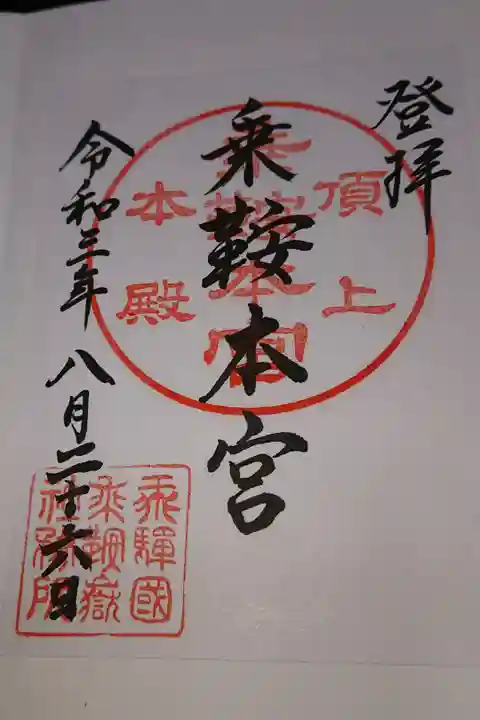 登拝
乗鞍本宮
令和三年 八月二十六日
頂上
乗鞍本宮
本殿
飛騨國
乗鞍嶽
社務所